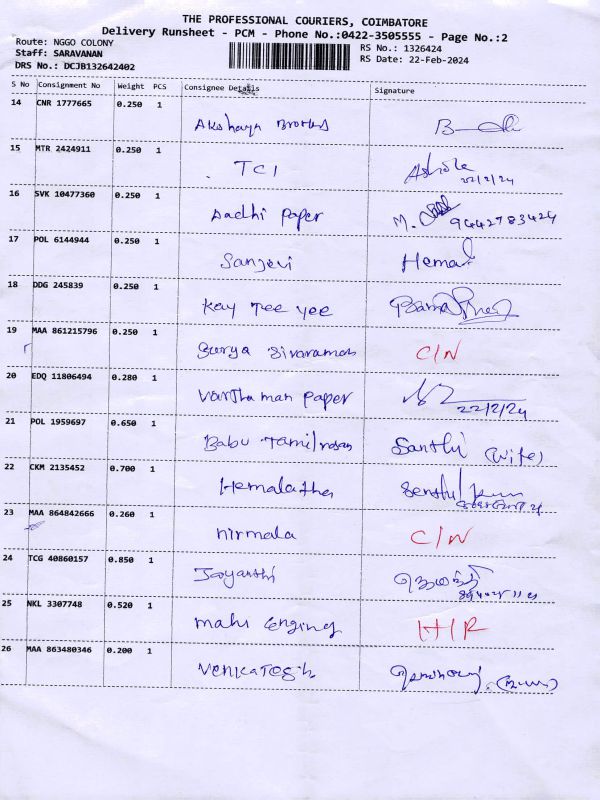 THE PROFESSIONAL COURIERS, COIMBATORE
Delivery Runsheet - PCM - Phone No.:0422-3505555 - Page No.:2
Route: NGGO COLONY
RS No.: 1326424
Staff: SARAVANAN
RS Date: 22-Feb-2024
DRS No.: DCJB132642402
S No Consignment No Weight PCS Consignee Details Signature
14 CNR 1777665 0.250 1
Akshaya
15 MTR 2424911 0.250 1
TCI Ashok
22/2/24
16 SVK 10477360 0.250 1
Aadhi Paper M. 9442783424
17 POL 6144944 0.250 1
Sanjevi Hema
18 DDG 245839 0.250 1
Kay Tee yee
19 MAA 861215796 0.250 1
Surya Sivaraman C/N
20 EDQ 11806494 0.280 1
Varthaman paper
22/2/24
21 POL 1959697 0.650 1
Babu Santhi (Wife)
22 CKM 2135452 0.700 1
Hemalatha
23 MAA 864842666 0.260 1
nirmala C/N
24 TCG 40860157 0.850 1
Jayanthi
25 NKL 3307748 0.520 1
mahi
26 MAA 863480346 0.200 1
Venkatesh